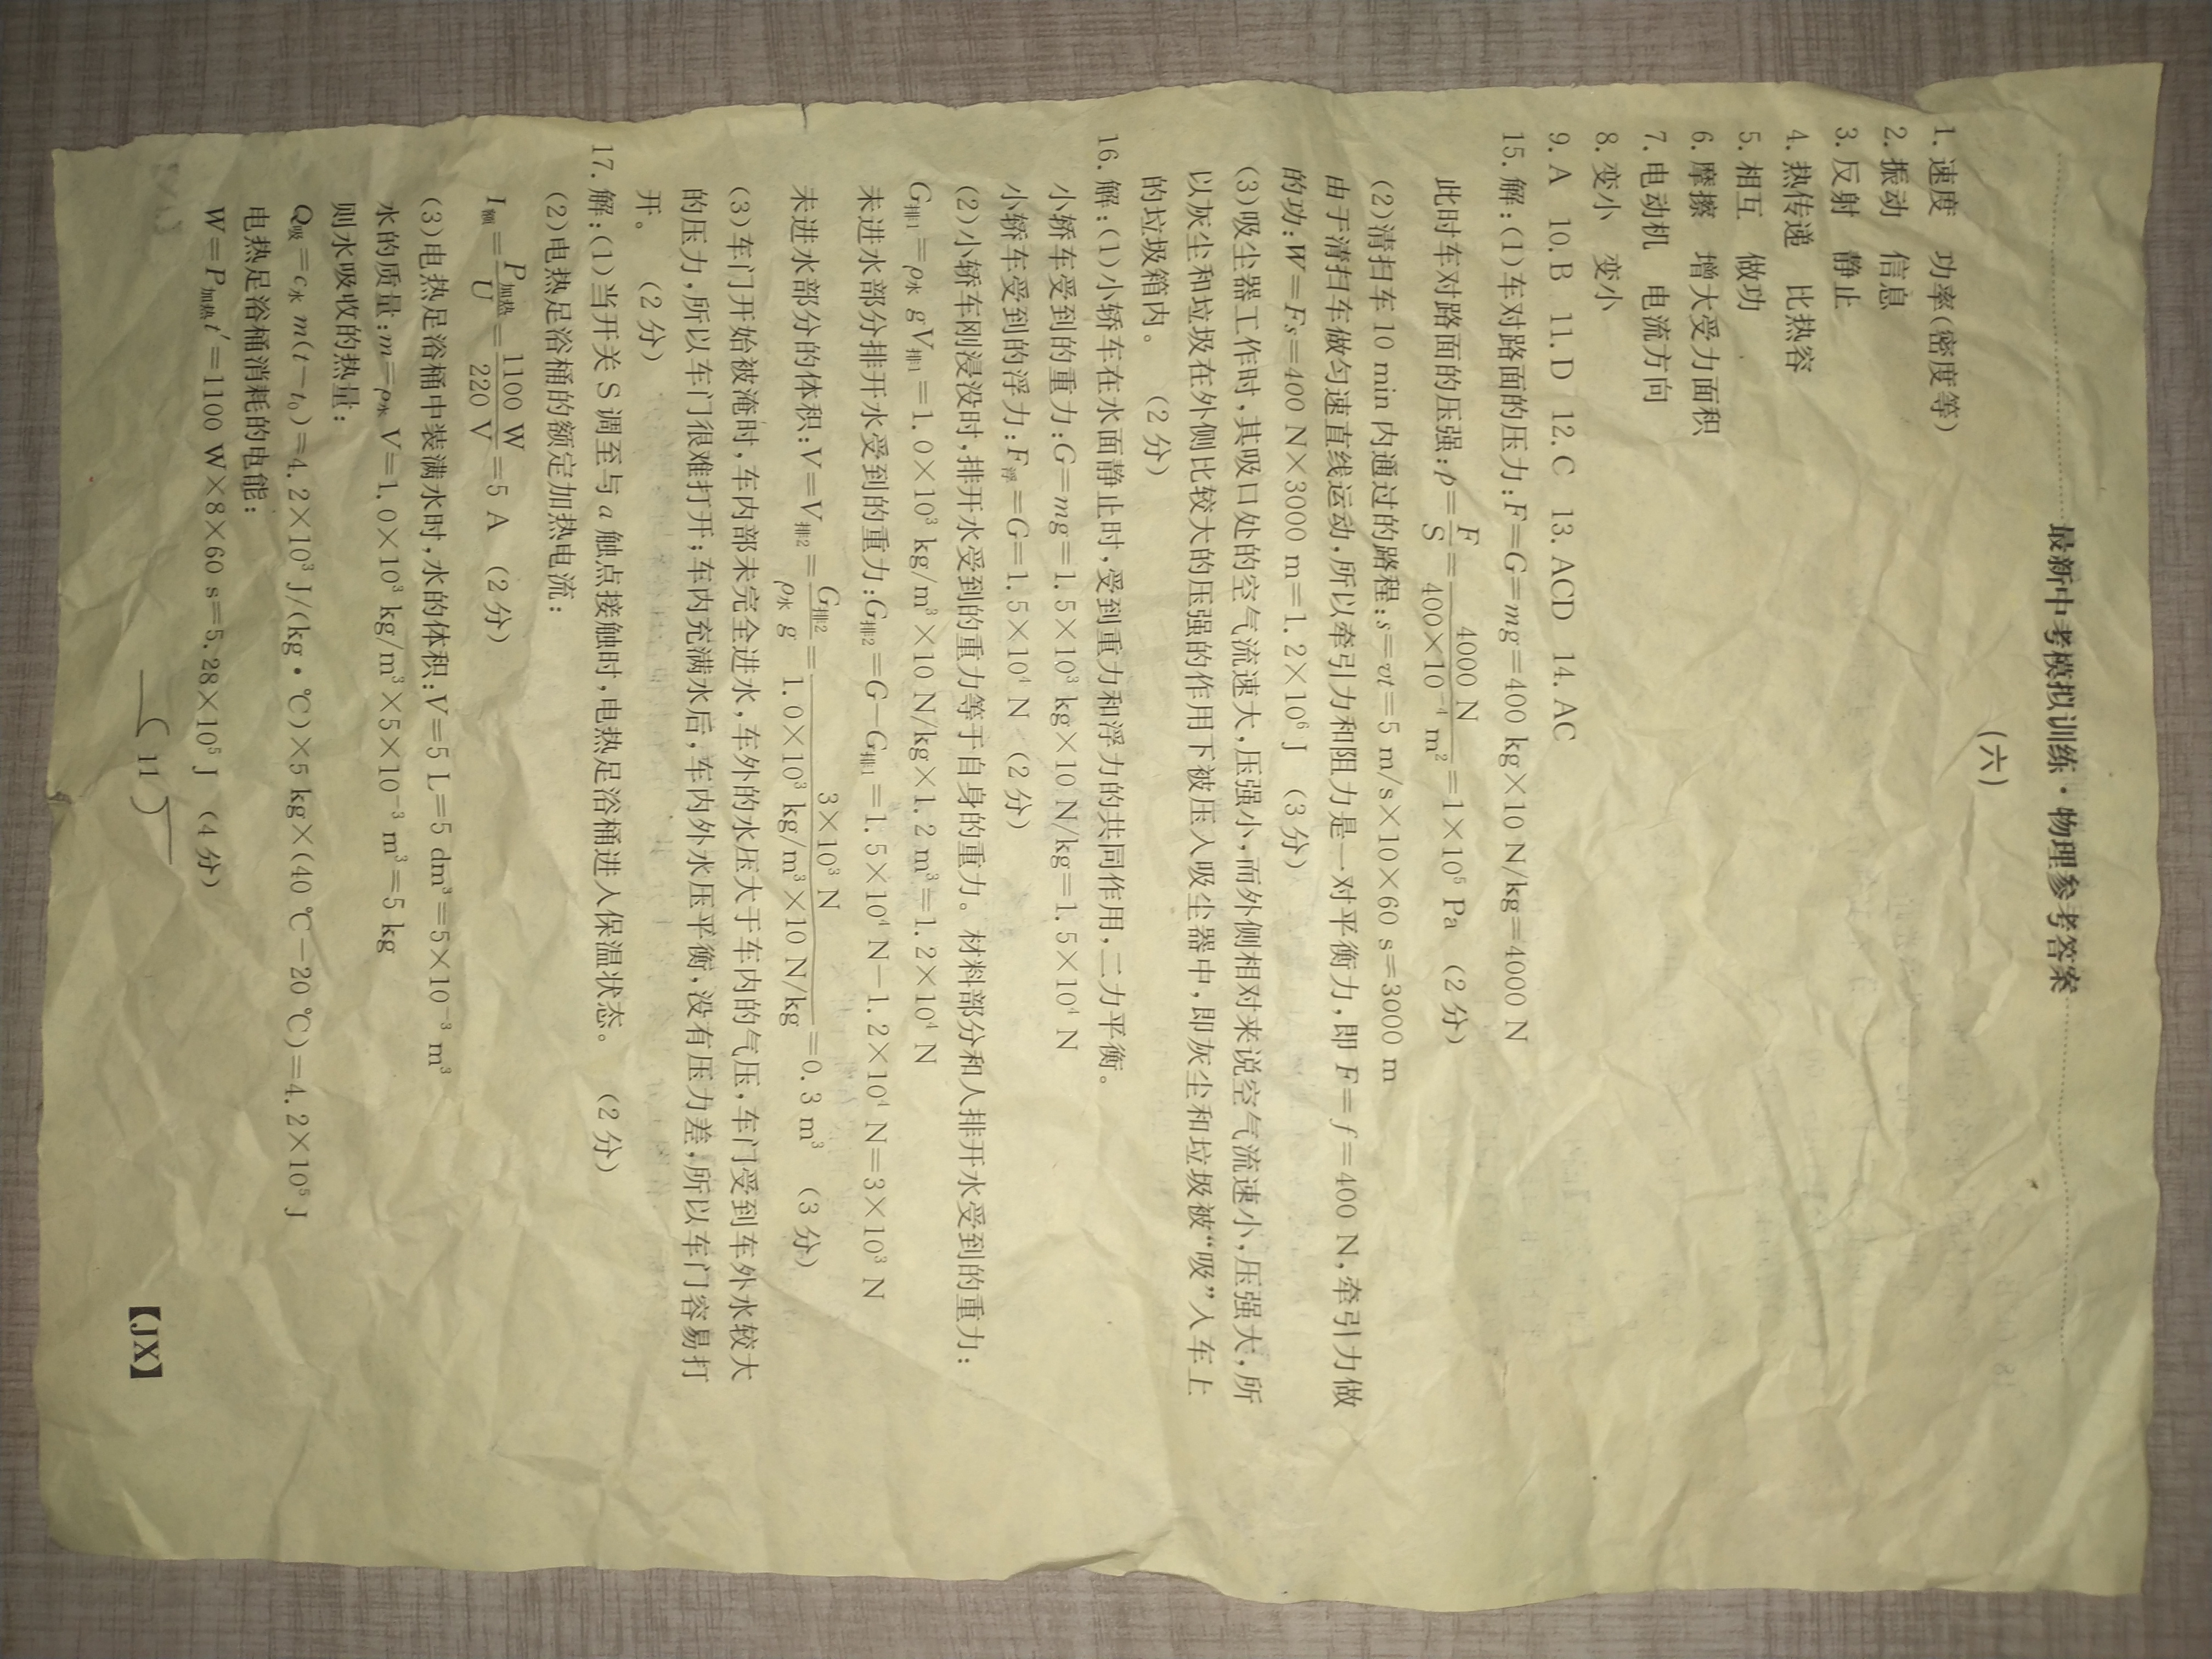 最新中考模拟训练·物理参考答案
(六)
1. 速度 功率(密度等)
2. 振动 信息
3. 反射 静止
4. 热传递 比热容
5. 相互 做功
6. 摩擦 增大受力面积
7. 电动机 电流方向
8. 变小 变小
9. A 10. B 11. D 12. C 13. ACD 14. AC
15. 解:(1)车对路面的压力:F=G=mg=400 kg×10 N/kg=4000 N
此时车对路面的压强:p=F/S=4000 N/400×10⁻⁴ m²=1×10⁵ Pa (2分)
(2)清扫车 10 min 内通过的路程:s=vt=5 m/s×10×60 s=3000 m
由于清扫车做匀速直线运动,所以牵引力和阻力是一对平衡力,即 F=f=400 N,牵引力做
的功:W=Fs=400 N×3000 m=1.2×10⁶ J (3分)
(3)吸尘器工作时,其吸口处的空气流速大,压强小,而外侧相对来说空气流速小,压强大,所
以灰尘和垃圾在外侧比较大的压强的作用下被压入吸尘器中,即灰尘和垃圾被“吸”入车上
的垃圾箱内。 (2分)
16. 解:(1)小轿车在水面静止时,受到重力和浮力的共同作用,二力平衡。
小轿车受到的重力:G=mg=1.5×10³ kg×10 N/kg=1.5×10⁴ N
小轿车受到的浮力:F浮=G=1.5×10⁴ N (2分)
(2)小轿车刚浸没时,排开水受到的重力等于自身的重力。材料部分和人排开水受到的重力:
G排1=ρ水 gV排1=1.0×10³ kg/m³×10 N/kg×1.2 m³=1.2×10⁴ N
未进水部分排开水受到的重力:G排2=G−G排1=1.5×10⁴ N−1.2×10⁴ N=3×10³ N
未进水部分的体积:V=V排2=G排2/ρ水 g=3×10³ N/1.0×10³ kg/m³×10 N/kg=0.3 m³ (3分)
(3)车门开始被淹时,车内部未完全进水,车外的水压大于车内的气压,车门受到车外水较大
的压力,所以车门很难打开;车内充满水后,车内外水压平衡,没有压力差,所以车门容易打
开。 (2分)
17. 解:(1)当开关 S 调至与 a 触点接触时,电热足浴桶进入保温状态。 (2分)
(2)电热足浴桶的额定加热电流:
I额=P加热/U=1100 W/220 V=5 A (2分)
(3)电热足浴桶中装满水时,水的体积:V=5 L=5 dm³=5×10⁻³ m³
水的质量:m=ρ水 V=1.0×10³ kg/m³×5×10⁻³ m³=5 kg
则水吸收的热量:
Q吸=c水 m(t−t₀)=4.2×10³ J/(kg·℃)×5 kg×(40 ℃−20 ℃)=4.2×10⁵ J
电热足浴桶消耗的电能:
W=P加热t′=1100 W×8×60 s=5.28×10⁵ J (4分)
( 11 )
【JX】